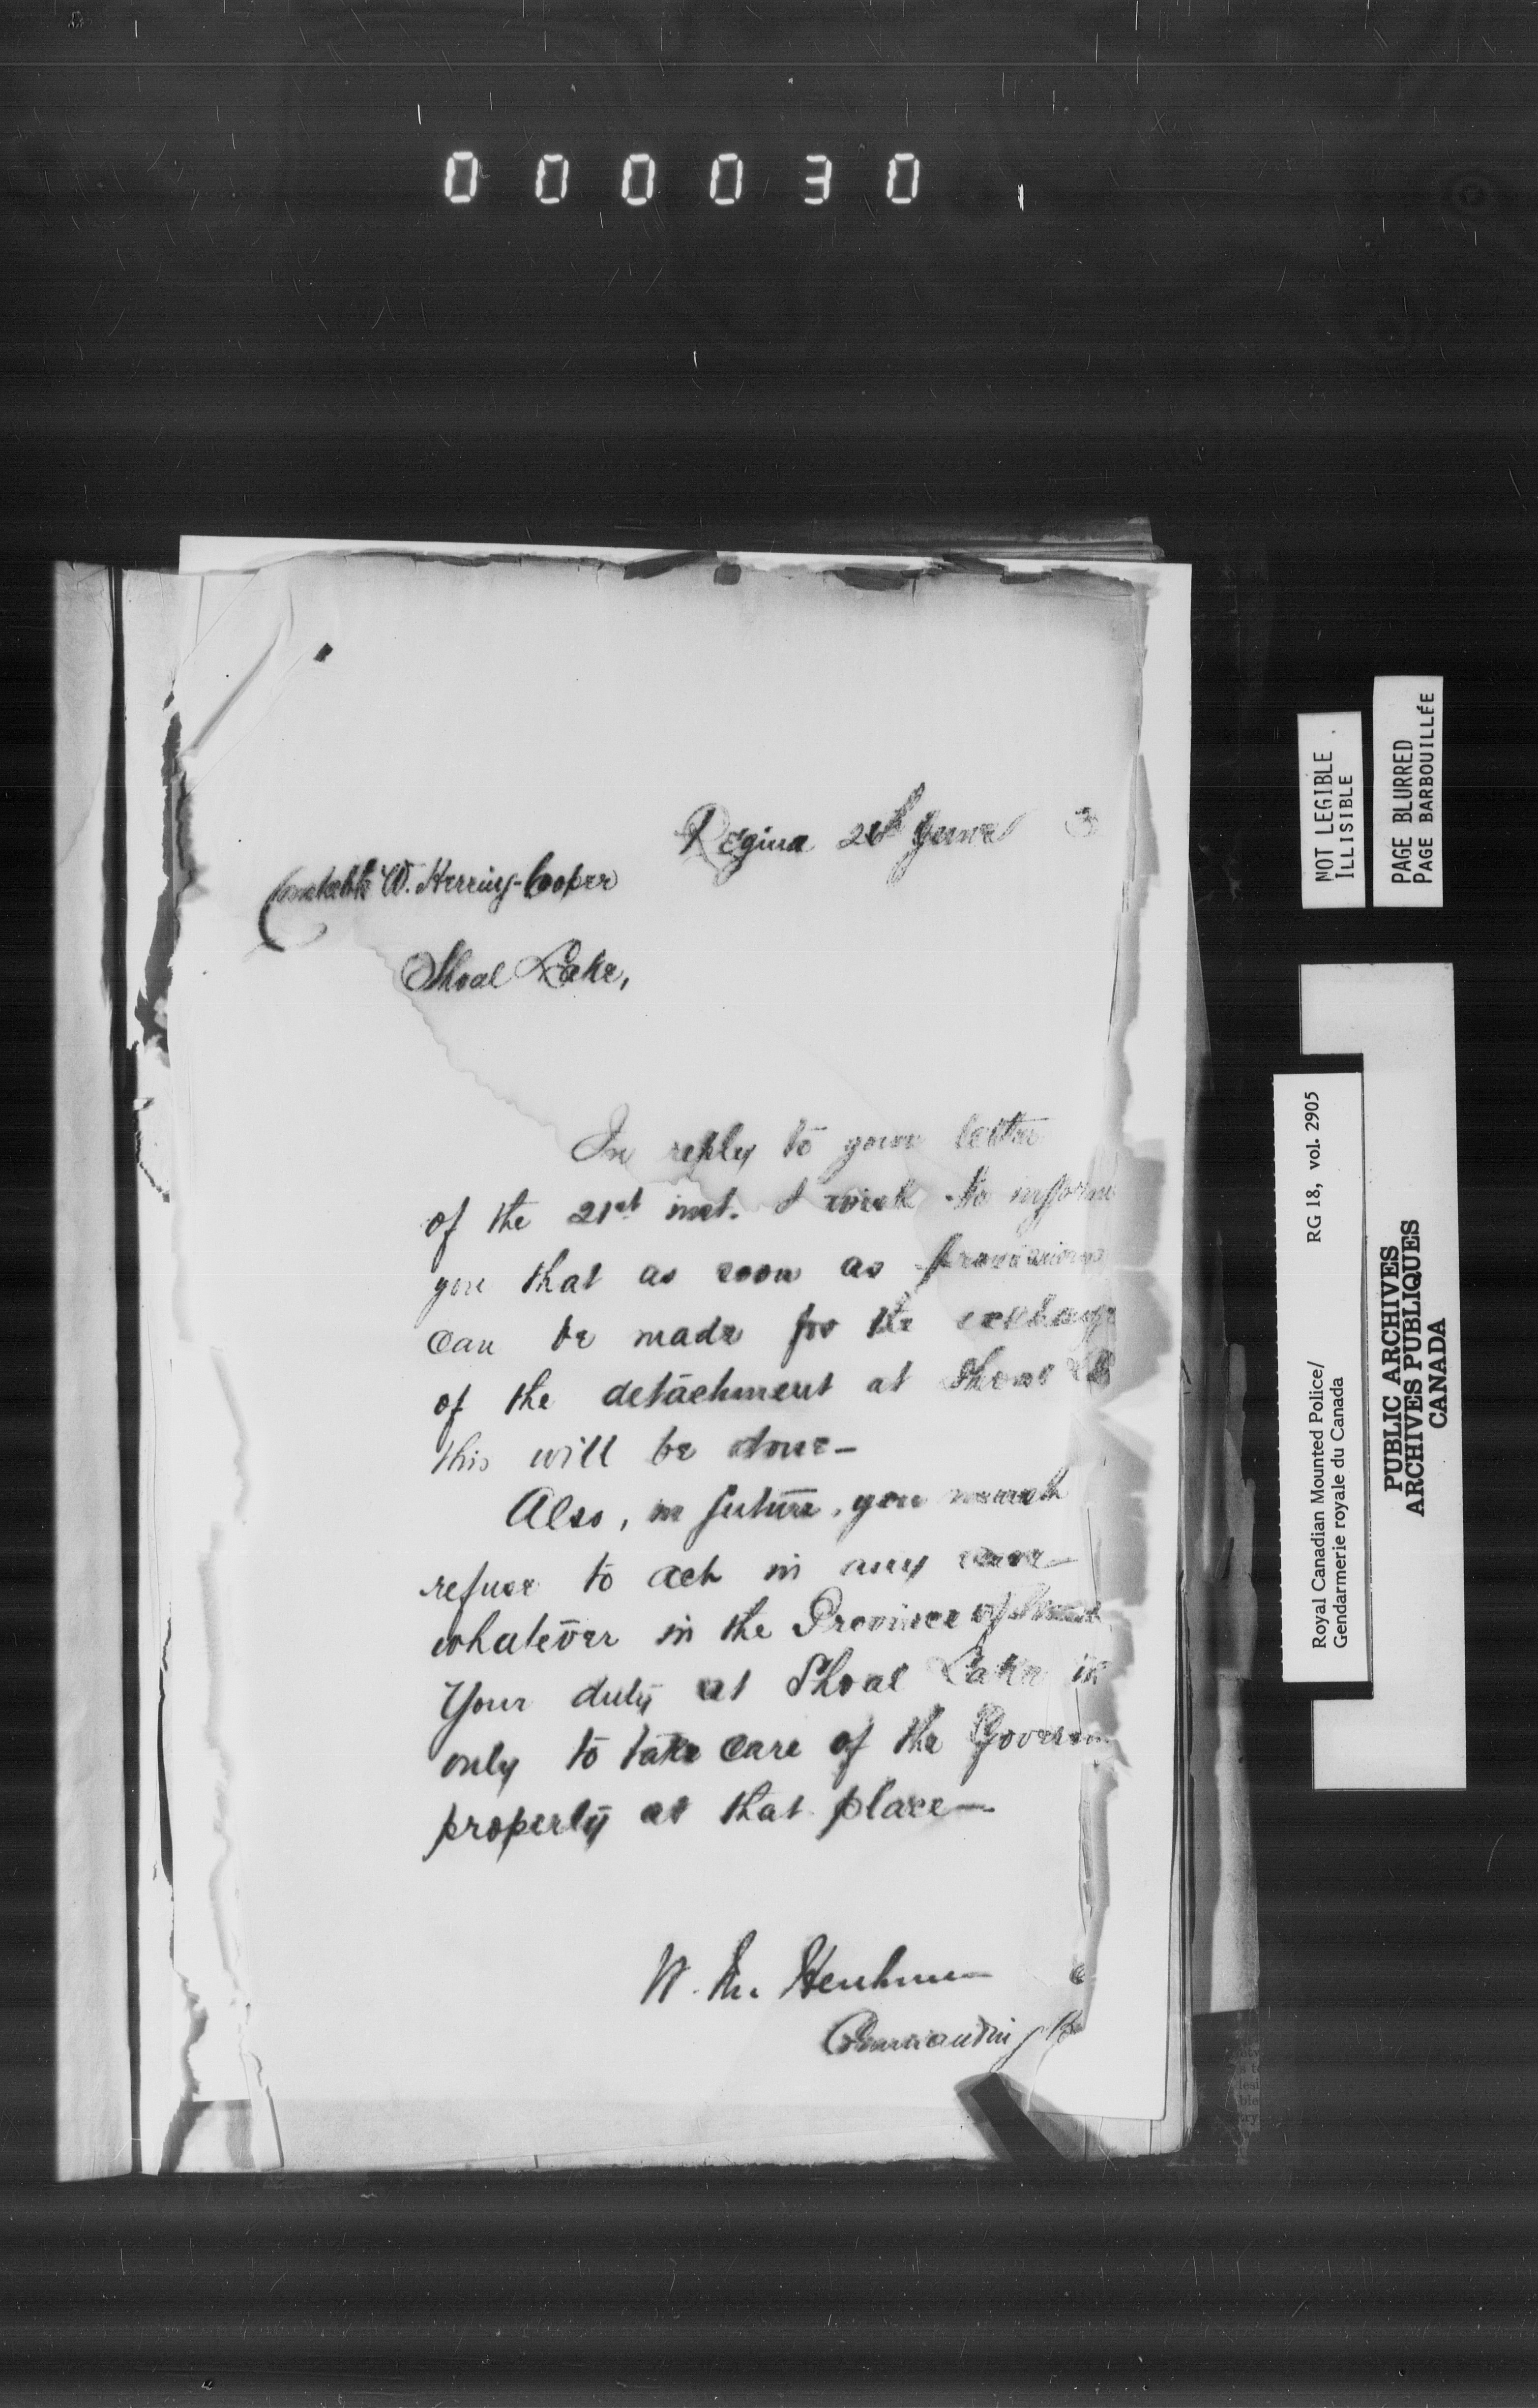 000030
Regina 2 June 3
Constable W. Herring-Cooper
Shoal Lake,
In reply to your letter
of the 21st inst. I wish to inform
you that as soon as provisions
can be made for the exchange
of the detachment at Shoal
this will be done —
Also, in future, you must
refuse to act in any case
whatever in the Province of
Your duty at Shoal Lake is
only to take care of the Governm
property at that place —
W. M. Herchmer
Commanding
NOT LEGIBLE
ILLISIBLE
PAGE BLURRED
PAGE BARBOUILLÉE
Royal Canadian Mounted Police/ RG 18, vol. 2905
Gendarmerie royale du Canada
PUBLIC ARCHIVES
ARCHIVES PUBLIQUES
CANADA